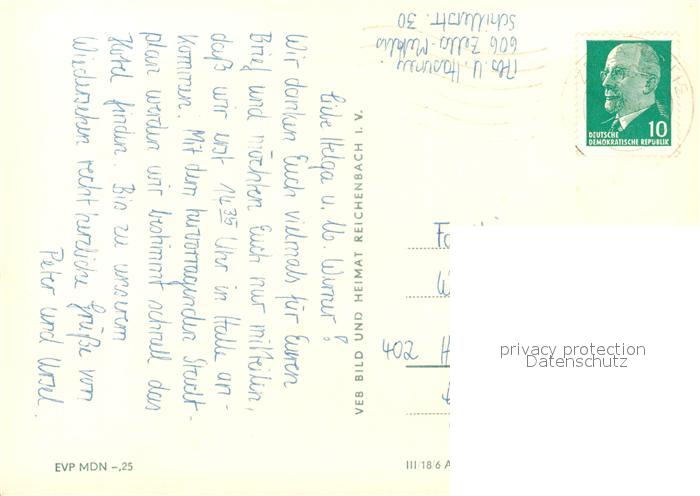 Liebe Helga u. lb. Werner!
Wir danken Euch vielmals für Euren
Brief und möchten Euch nur mitteilen,
daß wir erst 14 35 Uhr in Halle an-
kommen. Mit dem hervorragenden Stadt-
plan werden wir bestimmt schnell das
Hotel finden. Bis zu unserem
Wiedersehen recht herzliche Grüße von
Peter und Ursel.
VEB BILD UND HEIMAT REICHENBACH I. V.
606 Zella-Mehlis
Schillerstr. 30
DEUTSCHE
DEMOKRATISCHE REPUBLIK
10
402 H
privacy protection
Datenschutz
EVP MDN –,25
III/18/6 A